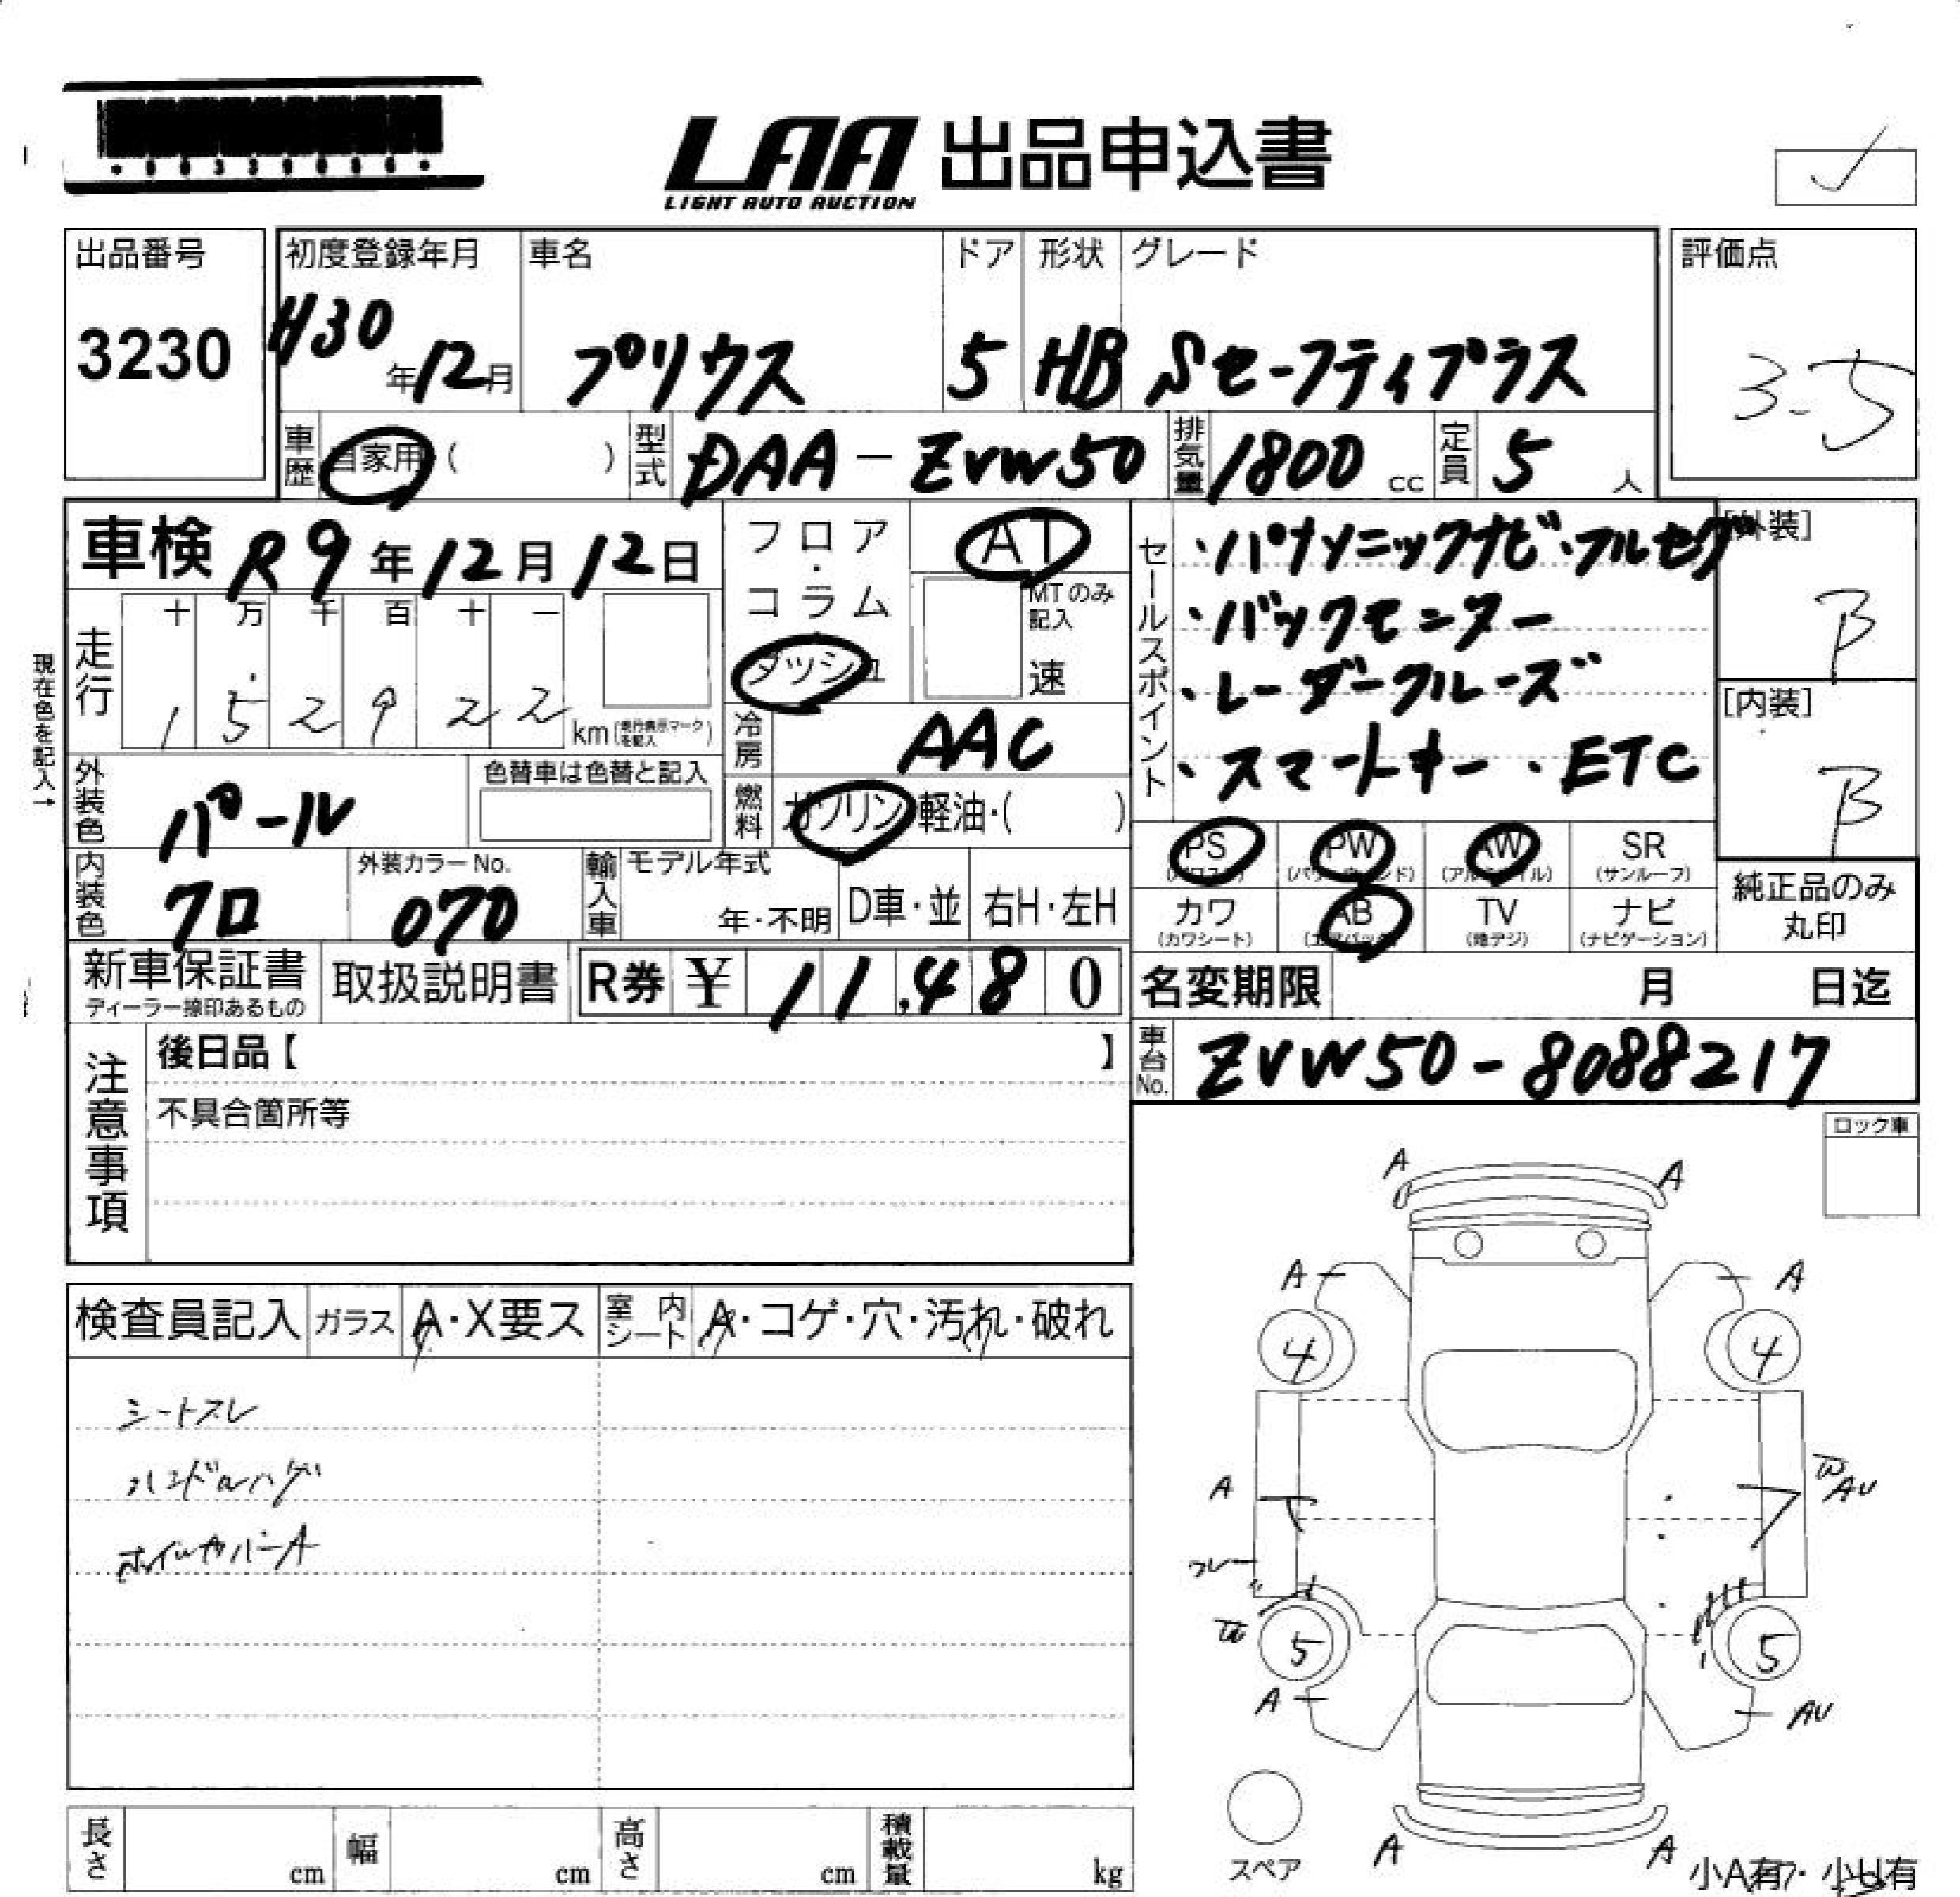 LAA 出品申込書
LIGHT AUTO AUCTION
出品番号
3230
初度登録年月
H30年12月
車名
プリウス
ドア
5
形状
HB
グレード
Sセーフティプラス
評価点
3.5
車歴 自家用 ( )
型式 DAA-ZVW50
排気量 1800 cc
定員 5 人
車検 R9年12月12日
フロア・コラム
ダッシュ
AT
MTのみ記入
速
セールスポイント
・パナソニックナビ・フルセグ
・バックモニター
・レーダークルーズ
・スマートキー ・ETC
[外装]
B
[内装]
B
現在色を記入→
走行
十 万 千 百 十 一
1 5 2 9 2 2 km (走行表示マークを記入)
冷房 AAC
外装色 パール
色替車は色替と記入
燃料 ガソリン 軽油・( )
PS (パワステ)
PW (パワーウィンド)
AW (アルミホイル)
SR (サンルーフ)
カワ (カワシート)
AB (エアバッグ)
TV (地デジ)
ナビ (ナビゲーション)
純正品のみ
丸印
内装色 クロ
外装カラーNo.
070
輸入車
モデル年式
年・不明
D車・並
右H・左H
新車保証書
ディーラー捺印あるもの
取扱説明書
R券 ¥ 11,480
名変期限 月 日迄
注意事項
後日品【 】
不具合箇所等
車台No. ZVW50-8088217
ロック車
検査員記入
ガラス A・X要ス
室内シート A・コゲ・穴・汚れ・破れ
シートスレ
ハンドルハゲ
ホイルカバーA
A A
A A
4 4
A
AU
5 5
A AU
A A
スペア
小A有・小U有
長さ cm
幅 cm
高さ cm
積載量 kg